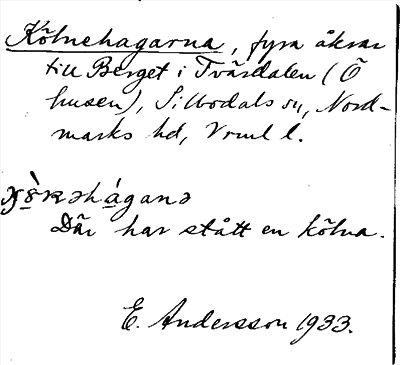 Kölnehagarna, fyra åkrar
till Berget i Tvärdalen (Ö
husen), Sillbodals sn, Nord-
marks hd, Vrml l.
Där har stått en kölna.
E. Andersson 1933.